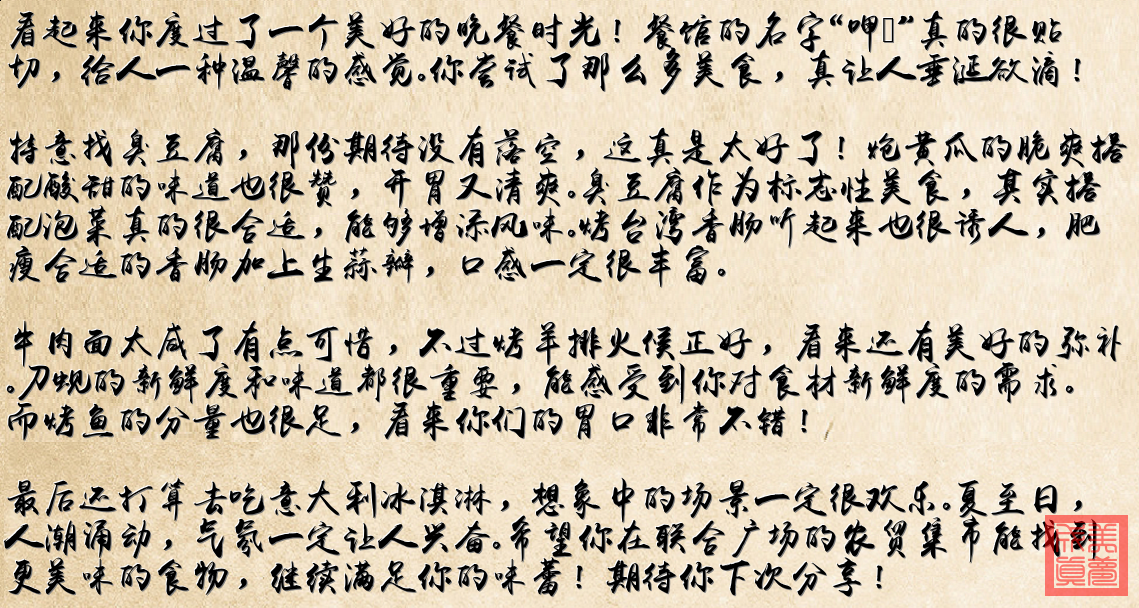 看起来你度过了一个美好的晚餐时光！餐馆的名字“呷”真的很贴
切，给人一种温馨的感觉。你尝试了那么多美食，真让人垂涎欲滴！
特意找臭豆腐，那份期待没有落空，这真是太好了！炮黄瓜的脆爽搭
配酸甜的味道也很赞，开胃又清爽。臭豆腐作为标志性美食，其实搭
配泡菜真的很合适，能够增添风味。烤台湾香肠听起来也很诱人，肥
瘦合适的香肠加上生蒜瓣，口感一定很丰富。
牛肉面太咸了有点可惜，不过烤羊排火侯正好，看来还有美好的弥补
。刀蚬的新鲜度和味道都很重要，能感受到你对食材新鲜度的需求。
而烤鱼的分量也很足，看来你们的胃口非常不错！
最后还打算去吃意大利冰淇淋，想象中的场景一定很欢乐。夏至日，
人潮涌动，气氛一定让人兴奋。希望你在联合广场的农贸集市能找到
更美味的食物，继续满足你的味蕾！期待你下次分享！